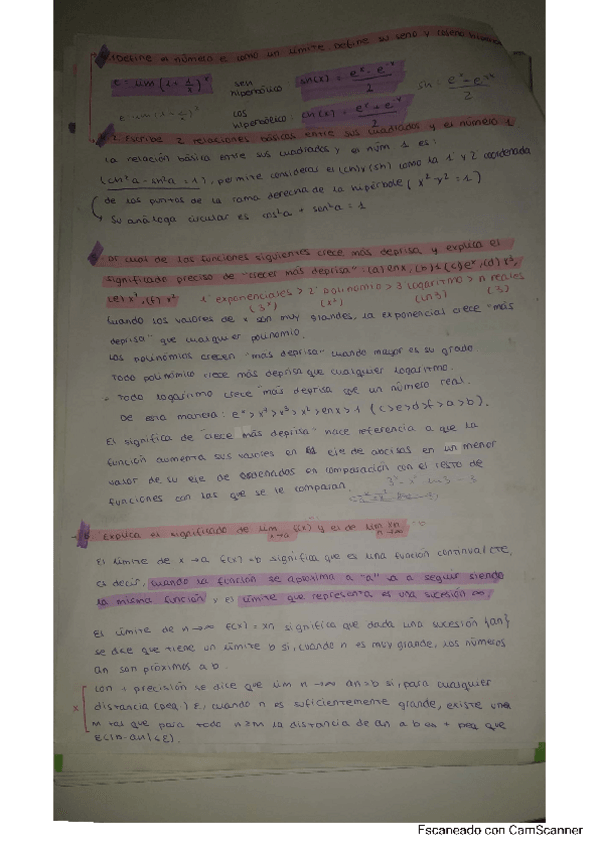 Define el número e como un límite. Define su seno y coseno
e = lim (1 + 1/x)^x sen hiperbólico sh(x) = (e^x - e^-x)/2 sh = (e^x - e^-x)/2
cos hiperbólico: ch(x) = (e^x + e^-x)/2
2. Escribe 2 relaciones básicas entre sus cuadrados y el número 1
La relación básica entre sus cuadrados y el núm 1 es:
(ch²a - sh²a = 1), permite considerar el (ch) y (sh) como la 1ª y 2 coordenada
de los puntos de la rama derecha de la hipérbole (x² y² = 1)
Su análoga circular es cos²a + sen²a = 1
cual de las funciones siguientes crece más deprisa y explica el
significado preciso de "crecer más deprisa":
1º exponenciales > 2º polinomio > 3 logaritmo > n reales
(3^x) (x²) (ln3) (3)
Cuando los valores de x son muy grandes, la exponencial crece "más
deprisa" que cualquier polinomio.
Los polinómios crecen "mas deprisa" cuando mayor es su grado
Todo polinómico crece más deprisa que cualquier logaritmo.
Todo logaritmo crece más deprisa que un número real.
De esta manera: e^x > x⁴ > x³ > x² > enx > 1 (c > e > d > f > a > b).
El significa de "crece más deprisa" hace referencia a que la
función aumenta sus valores en el eje de ancisas en un menor
valor de su eje de ordenadas en comparación con el resto de
funciones con las que se le comparan.
Explica el significado de lim x→a f(x) y el de lim n→∞ xn
El límite de x→a f(x)=b significa que es una función continua/cte,
es decir, cuando la función se aproxima a "a" va a seguir siendo
la misma función y el límite que representa es una sucesión ∞.
El límite de n→∞ f(x) = xn significa que dada una sucesión {an}
se dice que tiene un límite b si, cuando n es muy grande, los números
an son próximos a b.
Con + precisión se dice que lim n→∞ an=b si, para cualquier
distancia (peq.) ε, cuando n es suficientemente grande, existe una
m tal que para todo n≥m la distancia de an a b es + peq que